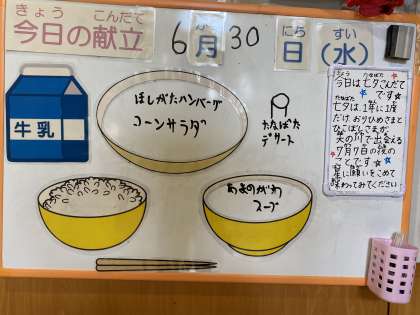 きょう こんだて
今日の献立
がつ にち すい
6月30日(水)
牛乳
ほしがたハンバーグ
コーンサラダ
たなばた
デザート
あまのがわ
スープ
きょう たなばた
今日は七夕こんだて
です☆
たなばた
七夕は1年に1度
だけ おりひめさまと
ひこぼしさまが
天の川で出会える
7月7日の夜の
ことです☆
星に願いをこめて
味わってみてください